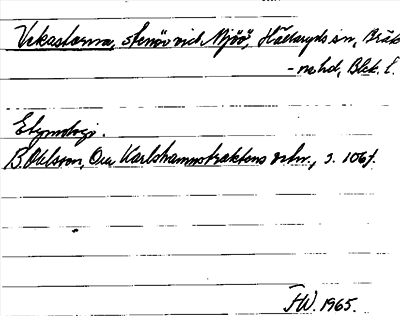 Vekastarna, stenöv vid Mjöö, Hällaryds sn, Bräk-
-ne hd, Blek. l.
Etymologi.
B. Ohlsson, Om Karlshamnstraktens ortn., s. 106 f.
FW. 1965.